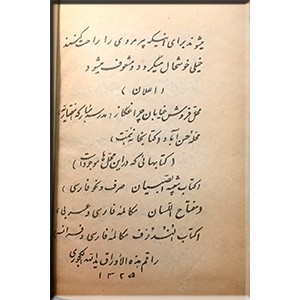 میشوند برای اینکه پیر مردی را راحت کنند
خیلی خوشحال میگردد و مشعوف میشود
(اعلان)
محل فروش خیابان چراغ گاز مدرسه مبارکه
محله حسن آباد کتابخانه
(کتابهائی که در این محل ها موجود است)
(کتاب نصیحة الصبیان صرف و نحو فارسی)
و مفتاح اللسان مکالمه فارسی و عربی
(کتاب مکالمه فارسی و فرانسه
راقم هذه الاوراق یدالله
۱۳۲۵